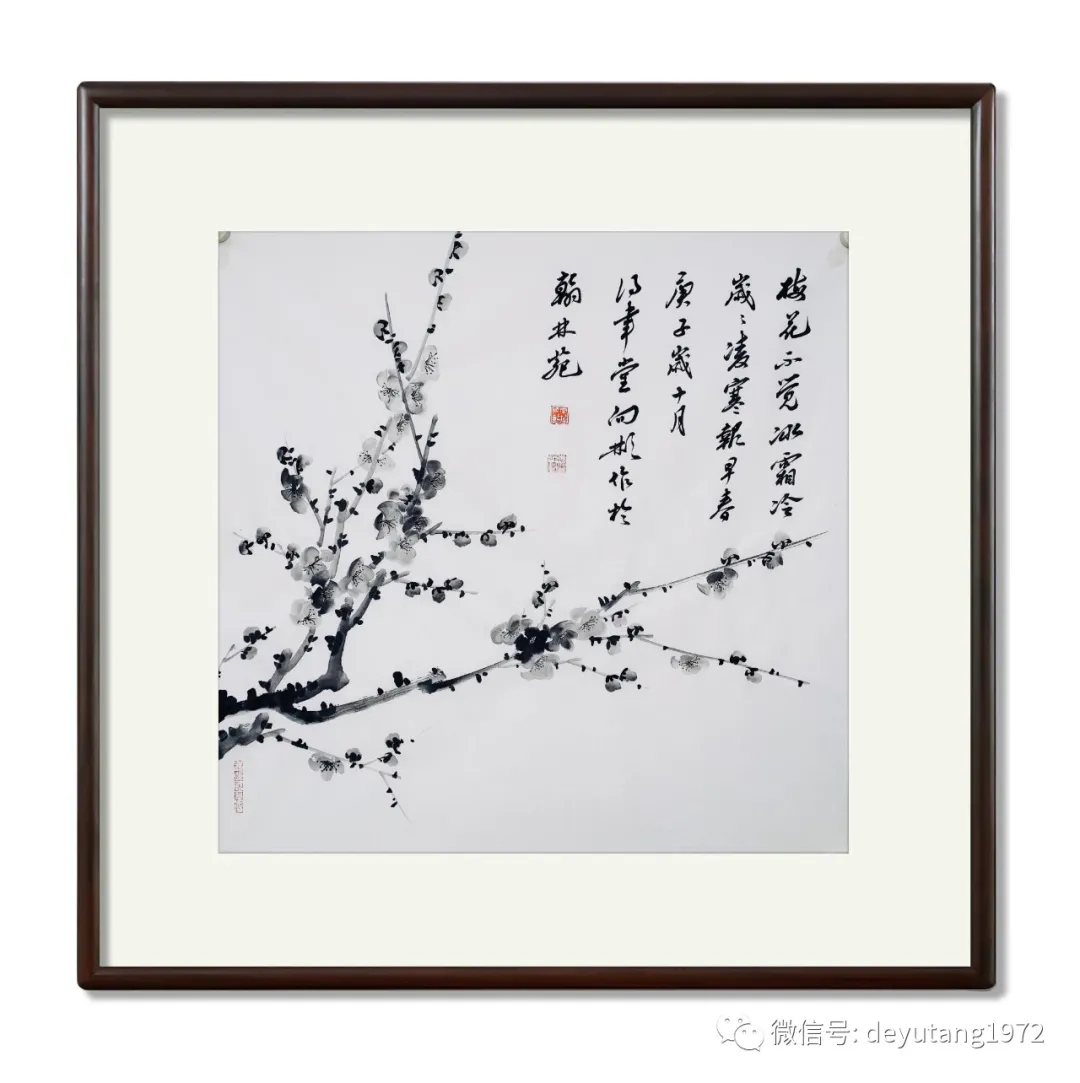 梅花不觉冰霜冷
歲々凌寒報早春
庚子歲十月
得聿堂向彬作於
翰林苑
微信号: deyutang1972